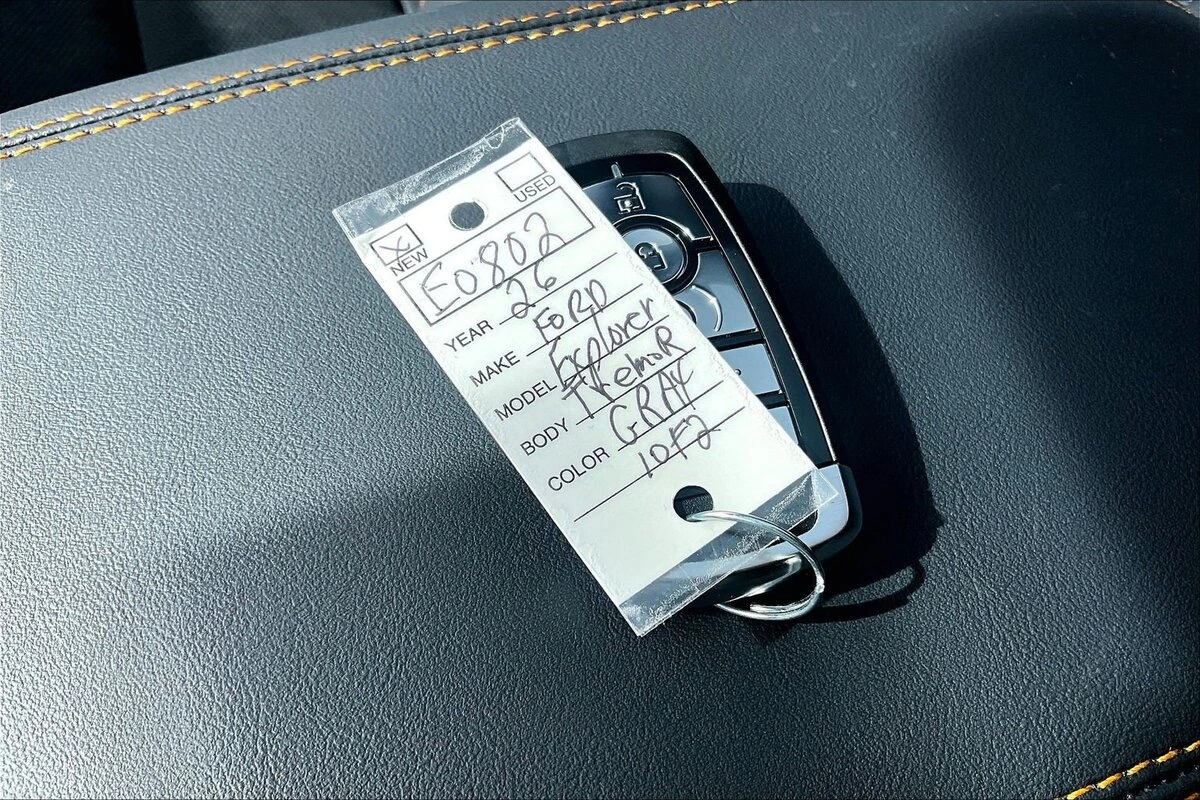 USED
NEW
E0802
YEAR 26
MAKE FORD
MODEL Explorer
BODY TRemoR
COLOR GRAY
1OF2